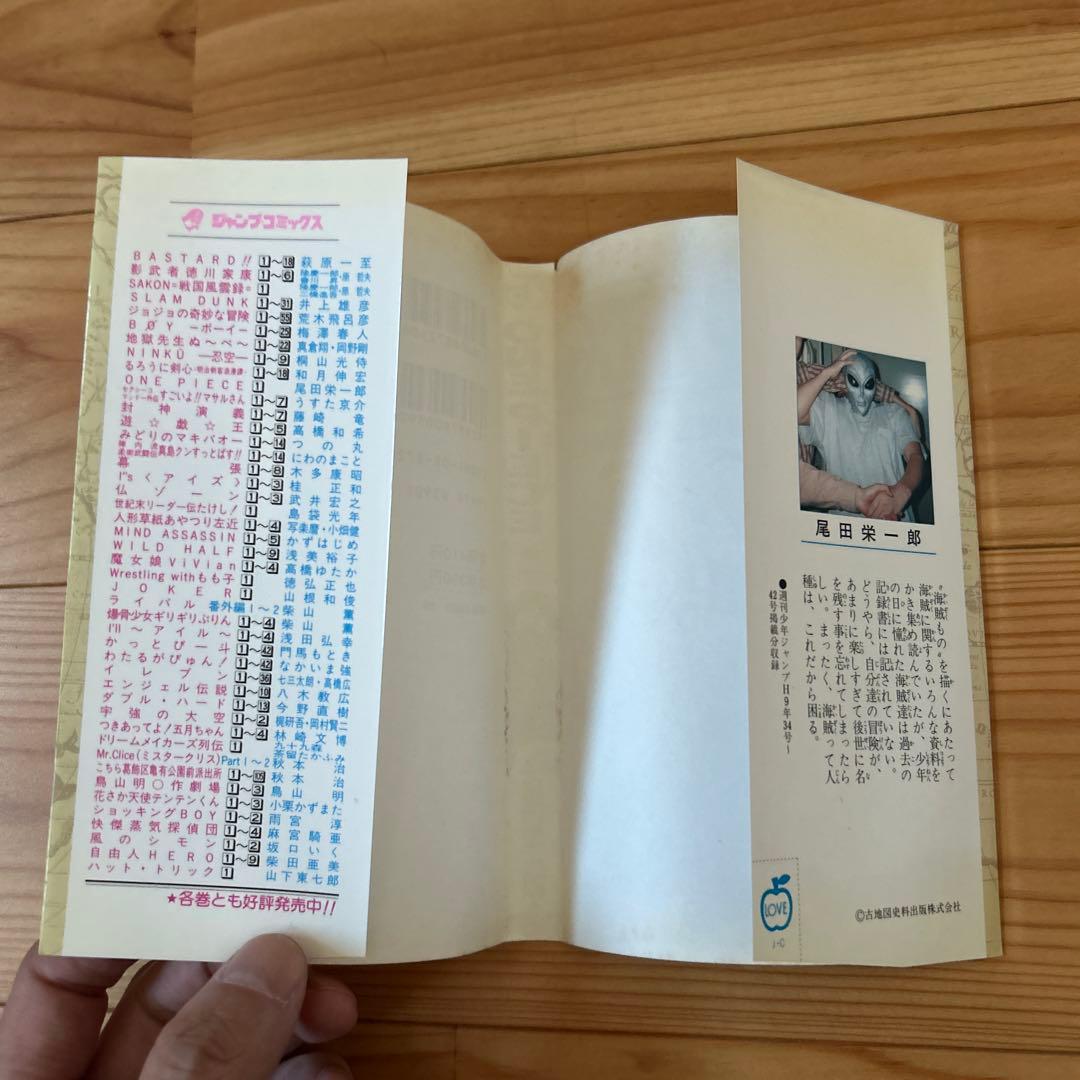 ジャンプコミックス
BASTARD!! 1〜18 萩原一至
影武者徳川家康 1〜6 隆慶一郎・會川昇・原哲夫
SAKON=戦国風雲録= 1 隆慶一郎・二橋進吾・原哲夫
SLAM DUNK 1〜31 井上雄彦
ジョジョの奇妙な冒険 1〜55 荒木飛呂彦
BØY —ボーイ— 1〜25 梅澤春人
地獄先生ぬ〜べ〜 1〜22 真倉翔・岡野剛
NINKŪ —忍空— 1〜9 桐山光侍
るろうに剣心・明治剣客浪漫譚・ 1〜18 和月伸宏
ONE PIECE 1 尾田栄一郎
セクシーコマンドー外伝 すごいよ!!マサルさん 1〜7 うすた京介
封神演義 1〜7 藤崎竜
遊☆戯☆王 1〜5 高橋和希
みどりのマキバオー 1〜14 つの丸
陣内流柔術武闘伝 真島クンすっとばす!! 1〜14 にわのまこと
幕張 1〜8 木多康昭
I"s〈アイズ〉 1〜3 桂正和
仏ゾーン 1〜3 武井宏之
世紀末リーダー伝たけし! 1 島袋光年
人形草紙あやつり左近 1〜4 写楽麿・小畑健
MIND ASSASSIN 1〜5 かずはじめ
WILD HALF 1〜9 浅美裕子
魔女娘ViVian 1〜4 高橋ゆたか
Wrestling withもも子 徳弘正也
JOKER 1 山根和俊
ライバル 番外編1〜2 柴山薫
爆骨少女ギリギリぷりん 1〜4 柴山薫
I'll 〜アイル〜 1〜4 浅田弘幸
かっとび一斗 1〜42 門馬もとき
わたるがぴゅん! 1〜42 なかいま強
イレブン 1〜36 七三太朗・高橋広
エンジェル伝説 1〜10 八木教広
ダブル・ハード 1〜13 今野直樹
宇強の大空 1〜2 梶研吾・岡村賢二
つきあってよ!五月ちゃん 1〜4 林崎文博
ドリームメイカーズ列伝 1 九十九森・茶留たかふみ
Mr.Clice(ミスタークリス) Part1〜2 秋本治
こちら葛飾区亀有公園前派出所 秋本治
鳥山明○作劇場 1〜3 鳥山明
花さか天使テンテンくん 1〜3 小栗かずまた
ショッキングBOY 1〜2 雨宮淳
快傑蒸気探偵団 1〜4 麻宮騎亜
風のシモン 1〜2 坂口いく
自由人HERO 1〜9 柴田亜美
ハット・トリック 1 山下東七郎
★各巻とも好評発売中!!
尾田栄一郎
"海賊もの"を描くにあたって
海賊に関するいろんな資料を
かき集め読んでいたが、少年
の日に憧れた海賊達は過去の
記録書には記されていない。
どうやら、自分達の冒険が、
あまりに楽しすぎて後世に名
を残す事を忘れてしまったら
しい。まったく、海賊って人
種は、これだから困る。
●週刊少年ジャンプH9年34号〜
42号掲載分収録
LOVE
J-C
©古地図史料出版株式会社